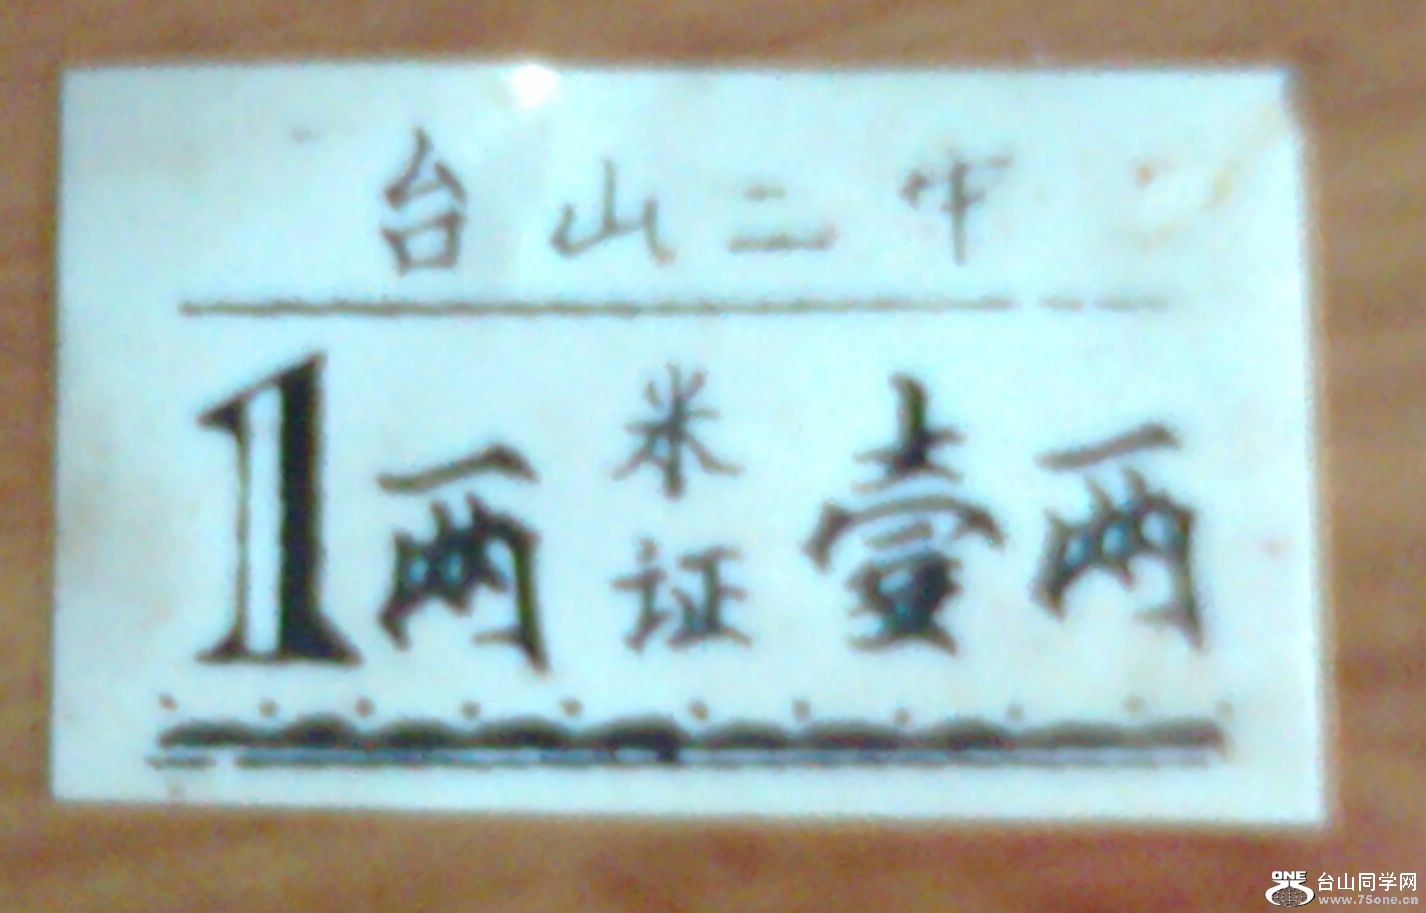 台山二中
1两 米证 壹两
ONE 台山同学网
www.75one.cn